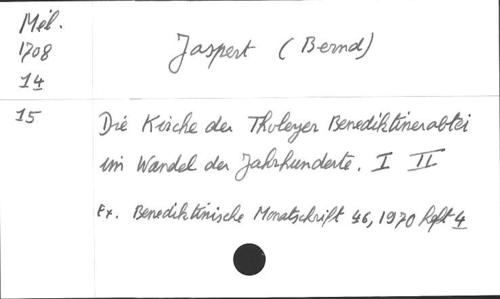 Mél.
1708
14
Jaspert (Bernd)
15
Die Kirche der Tholeyer Benediktinerabtei
im Wandel der Jahrhunderte. I II
Ex. Benediktinische Monatschrift 46, 1970 Heft 4